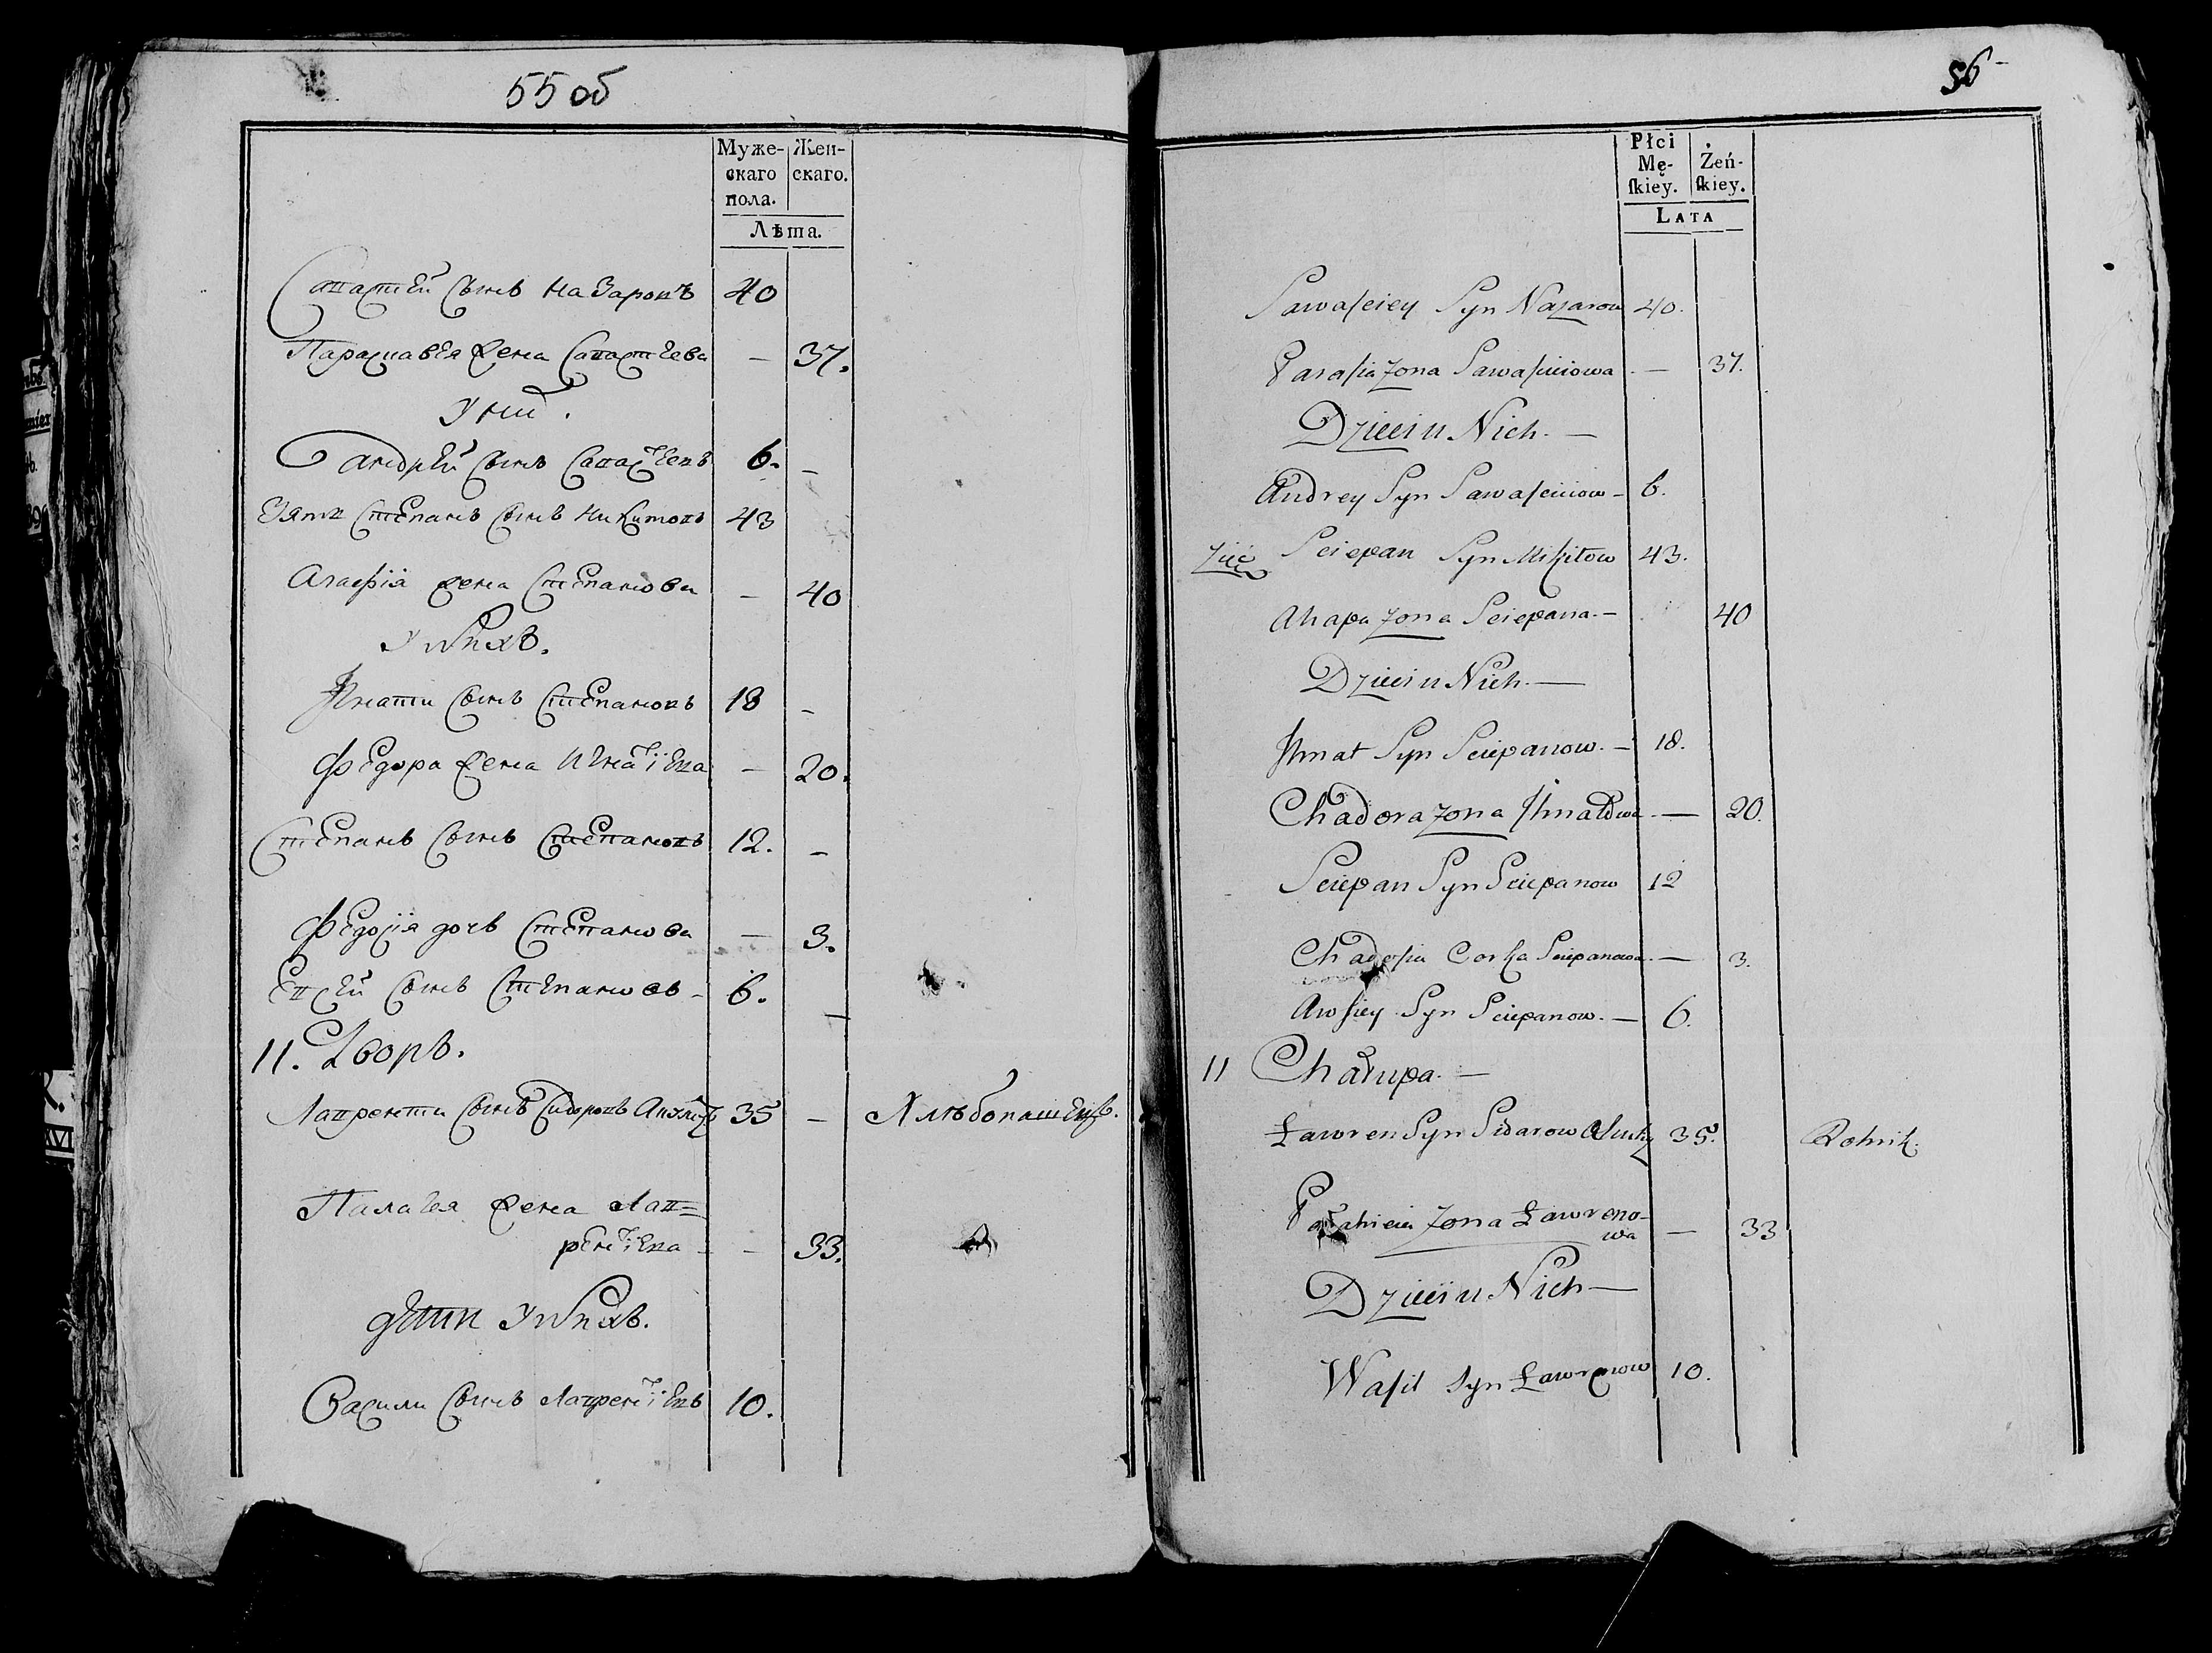 55 об
Муже-
скаго
пола.
Жен-
скаго.
Лѣта.
Савастей сынъ Назаровъ 40
Парасиавья жена Савастьева — 37.
У них.
Андрей сынъ Савастьевъ 6. —
Зять Степанъ сынъ Никитовъ 43
Агафія жена Степанова — 40
У нихъ.
Игнати сынъ Степановъ 18 —
Федора жена Игнатіева — 20.
Степанъ сынъ Степановъ 12. —
Федосія дочь Степанова — 3.
Евсей сынъ Степановъ — 6. —
11. Дворъ.
Лаврентии сынъ Сидоровъ 35 — Хлѣбопашецъ.
Палагея жена Лав=
рентіева — — 33.
дѣти У нихъ.
Васили сынъ Лаврентіевъ 10.
56
Płci
Mę-
ſkiey.
Żeń-
ſkiey.
LATA
Sawaſciey Syn Nazarow 40.
Paraſia Zona Sawaſciiowa — 37.
Dzieci u Nich. —
Andrey Syn Sawaſciiow — 6.
Zięć Sciepan Syn Mikitow 43.
Ahapa Zona Sciepana. — 40
Dzieci u Nich. —
Ihnat Syn Sciepanow. — 18.
Chadora Zona Ihnatowa — 20.
Sciepan Syn Sciepanow 12
Chadosia Corka Sciepanowa. — 3.
Awsiey Syn Sciepanow. — 6.
11 Chałupa. —
Ławren Syn Sidarow 35. Rolnik.
Pałahieia Zona Ławreno-
wa — 33
Dzieci u Nich —
Waſil Syn Ławrenow 10.